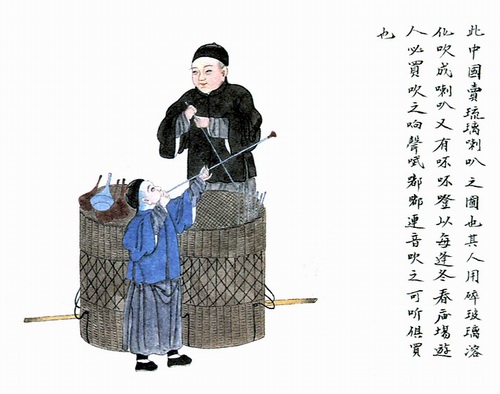 此中國賣琉璃喇叭之圖也其人用碎玻璃溶
化吹成喇叭又有噔以每逢冬春庙場遊
人必買吹之响聲嘟嘟連音吹之可听俱買
也